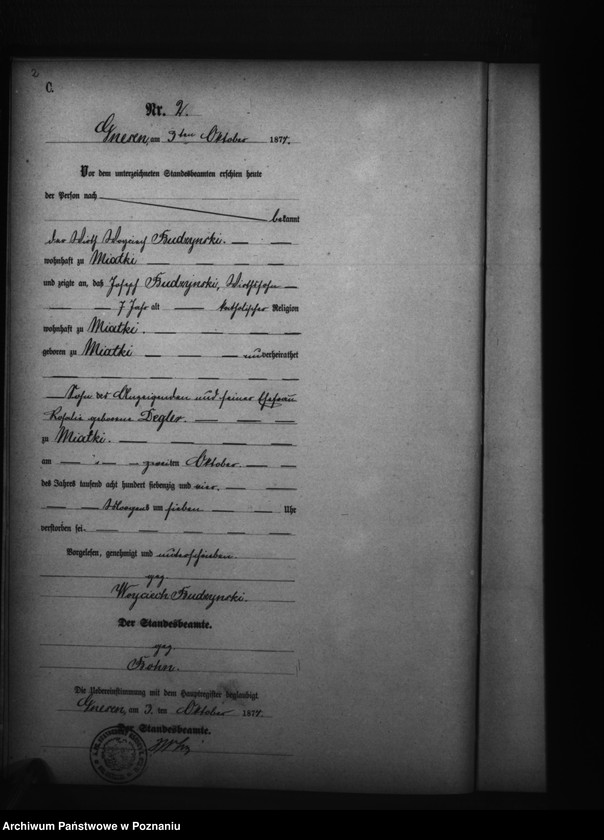 2
C.
Nr. 2.
Gnesen, am 3ten Oktober 1874.
Vor dem unterzeichneten Standesbeamten erschien heute
der Person nach
bekannt
der Wirth Woyciech Budzynski.
wohnhaft zu Miatki
und zeigte an, daß Joseph Budzynski, Wirthssohn
7 Jahr alt katholischer Religion
wohnhaft zu Miatki.
geboren zu Miatki unverheirathet
Sohn des Anzeigenden und seiner Ehefrau
Rosalie geborene Degler.
zu Miatki.
am zweiten Oktober.
des Jahres tausend acht hundert siebenzig und vier.
Morgens um sieben Uhr
verstorben sei.
Vorgelesen, genehmigt und unterschrieben.
gez.
Woyciech Budzynski.
Der Standesbeamte.
gez
Die Uebereinstimmung mit dem Hauptregister beglaubigt
Gnesen, am 3. ten Oktober 1874.
Der Standesbeamte.
Archiwum Państwowe w Poznaniu